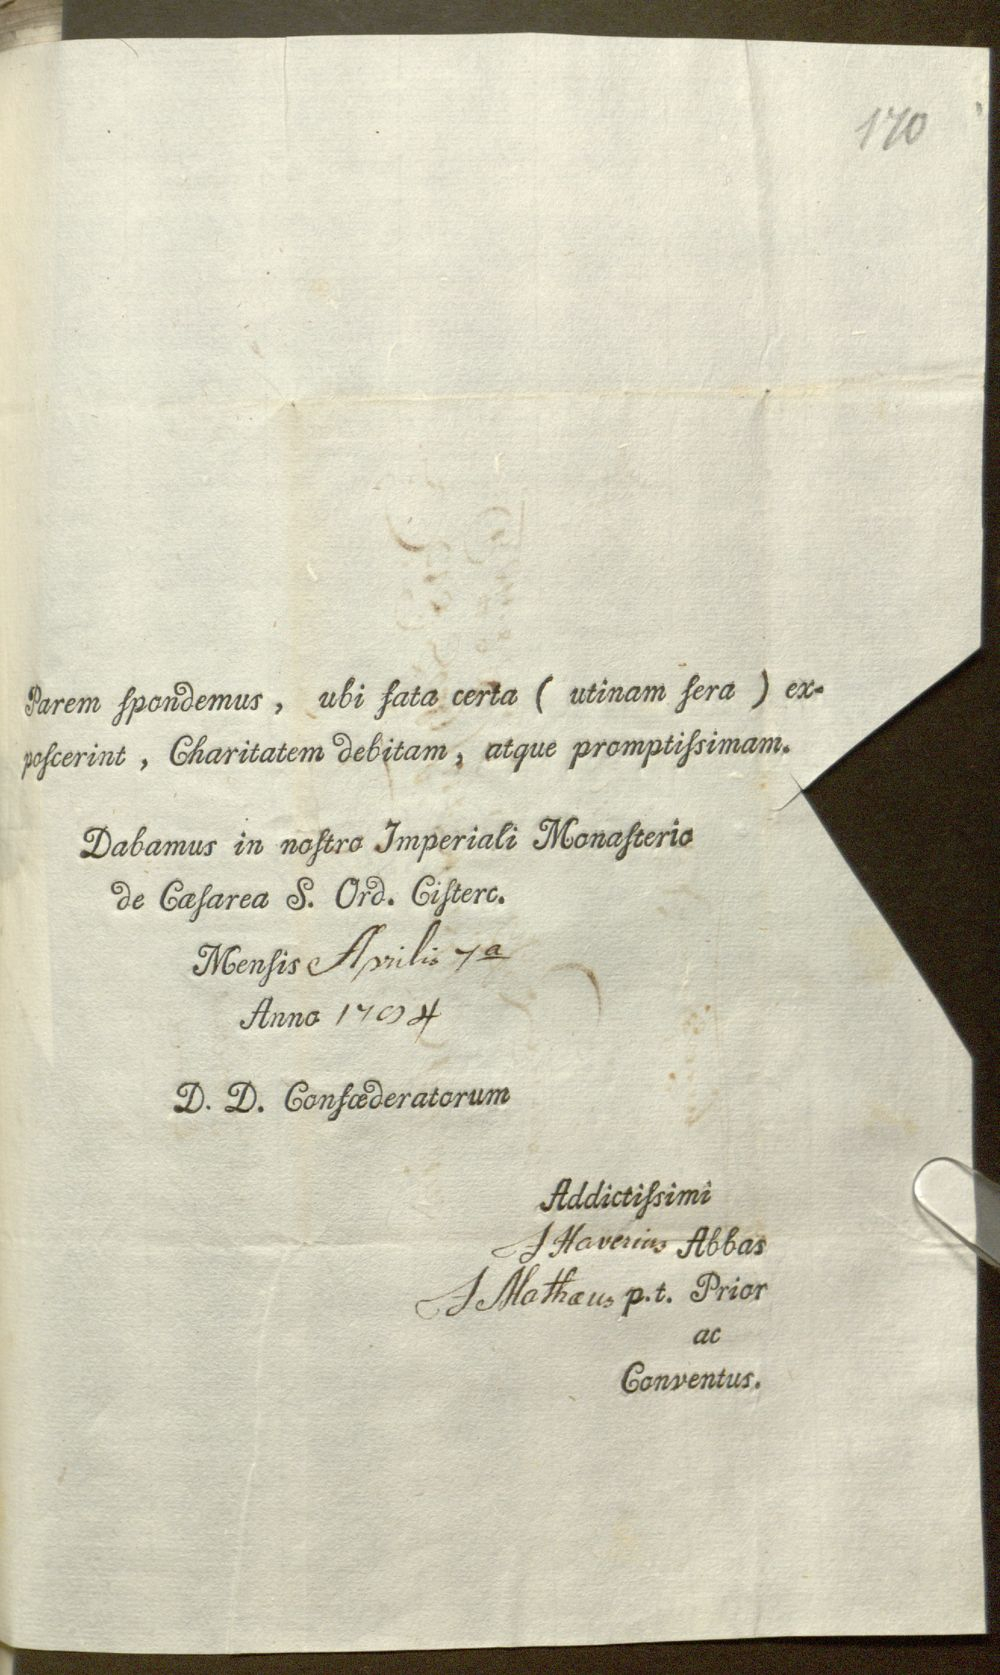 170
Parem ſpondemus, ubi fata certa ( utinam ſera ) ex-
poſcerint, Charitatem debitam, atque promptiſsimam.
Dabamus in noſtro Imperiali Monaſterio
de Cæſarea S. Ord. Ciſterc.
Menſis Aprilis 7ª
Anno 1794
D. D. Confœderatorum
Addictiſsimi
F Xaverius Abbas
F Mathæus p.t. Prior
ac
Conventus.